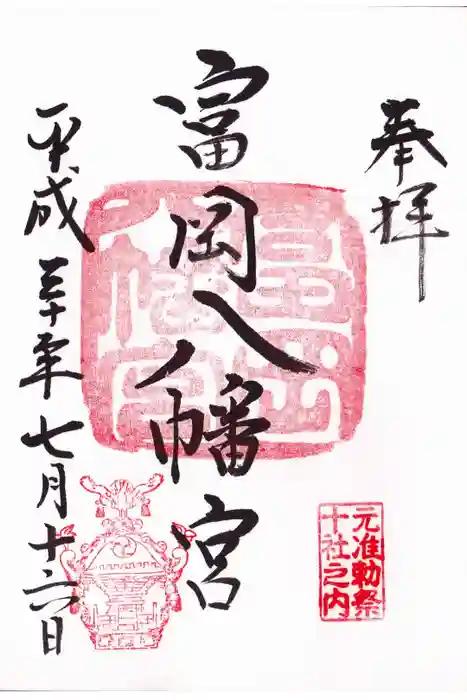 奉拝
富岡八幡宮
平成三十年七月十六日
元准勅祭
十社之内